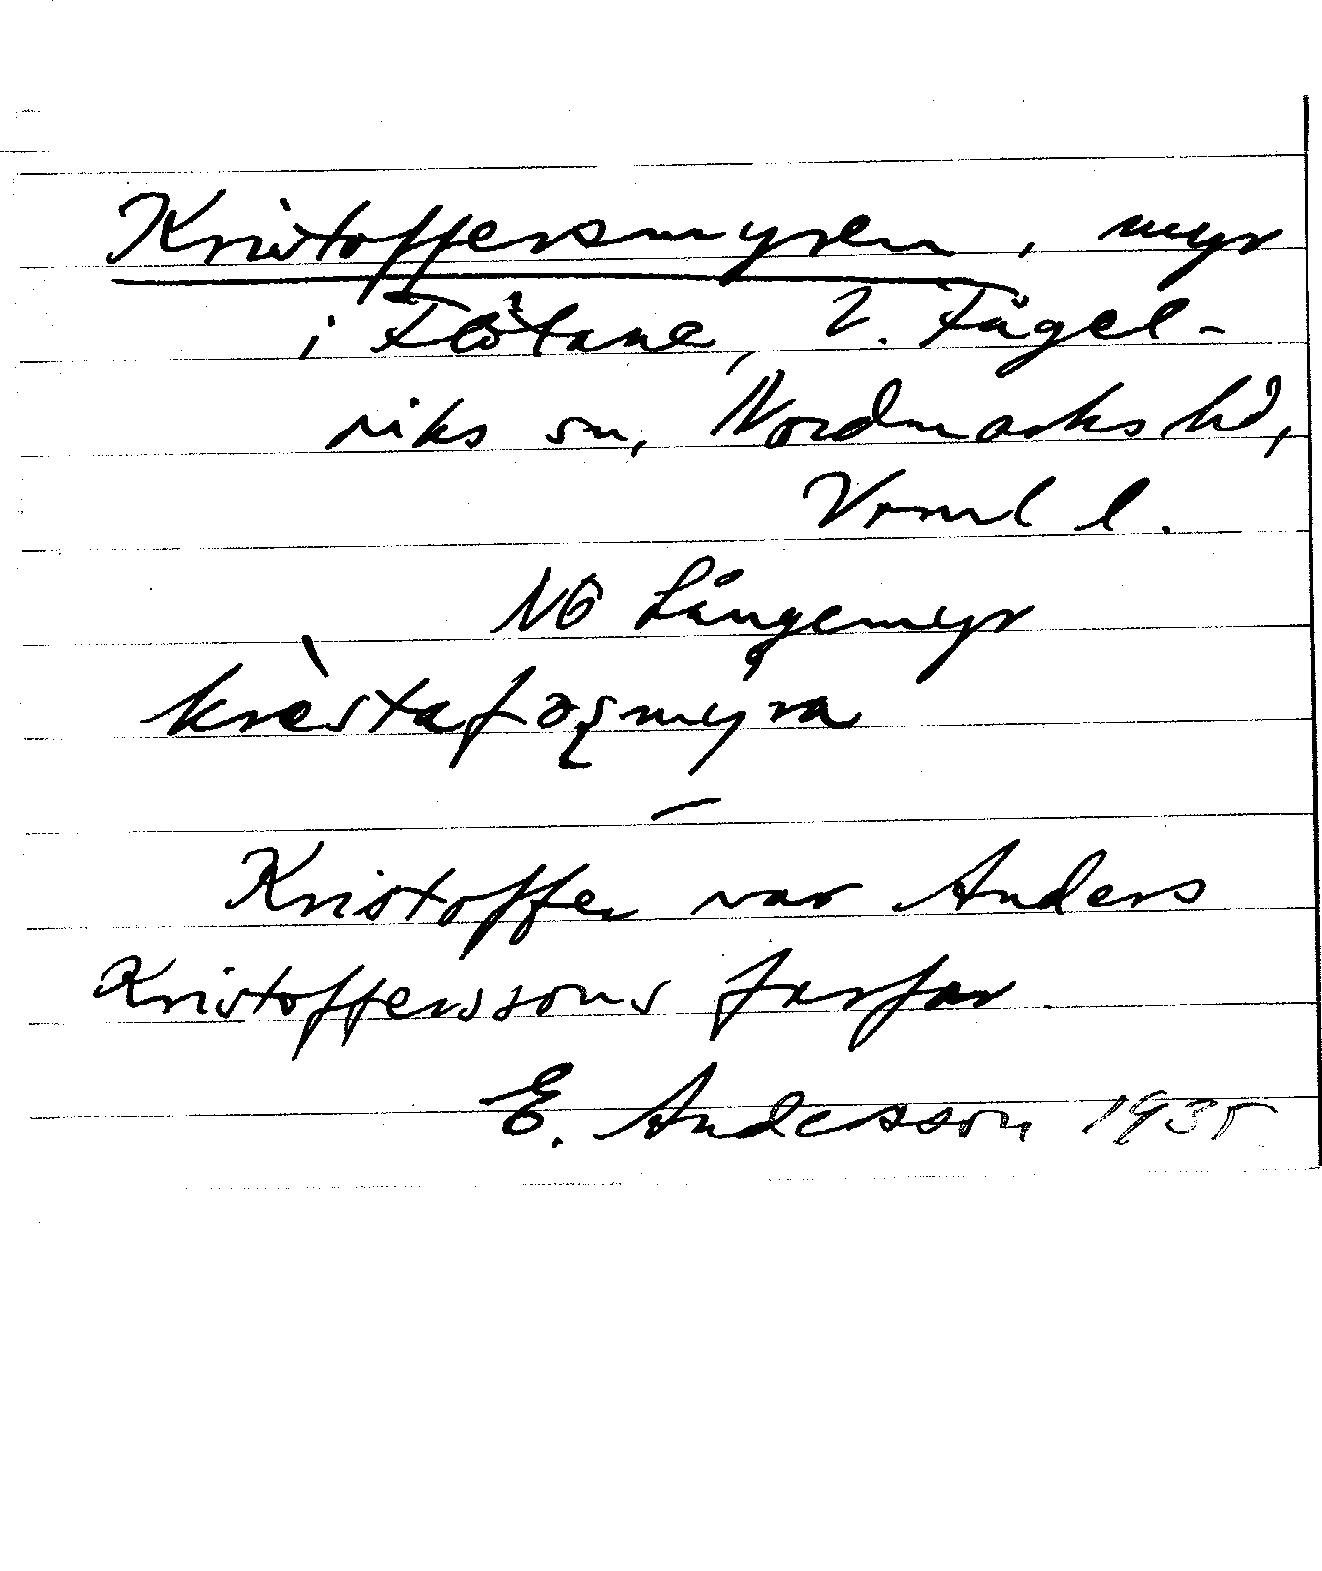 Kristoffersmyren, myr
i Flötane, V. Fågel-
viks sn, Nordmarks hd,
Vrml l.
NO Långemyr
krèstafəʂmyra
—
Kristoffer var Anders
Kristofferssons farfar.
E. Andersson 1935